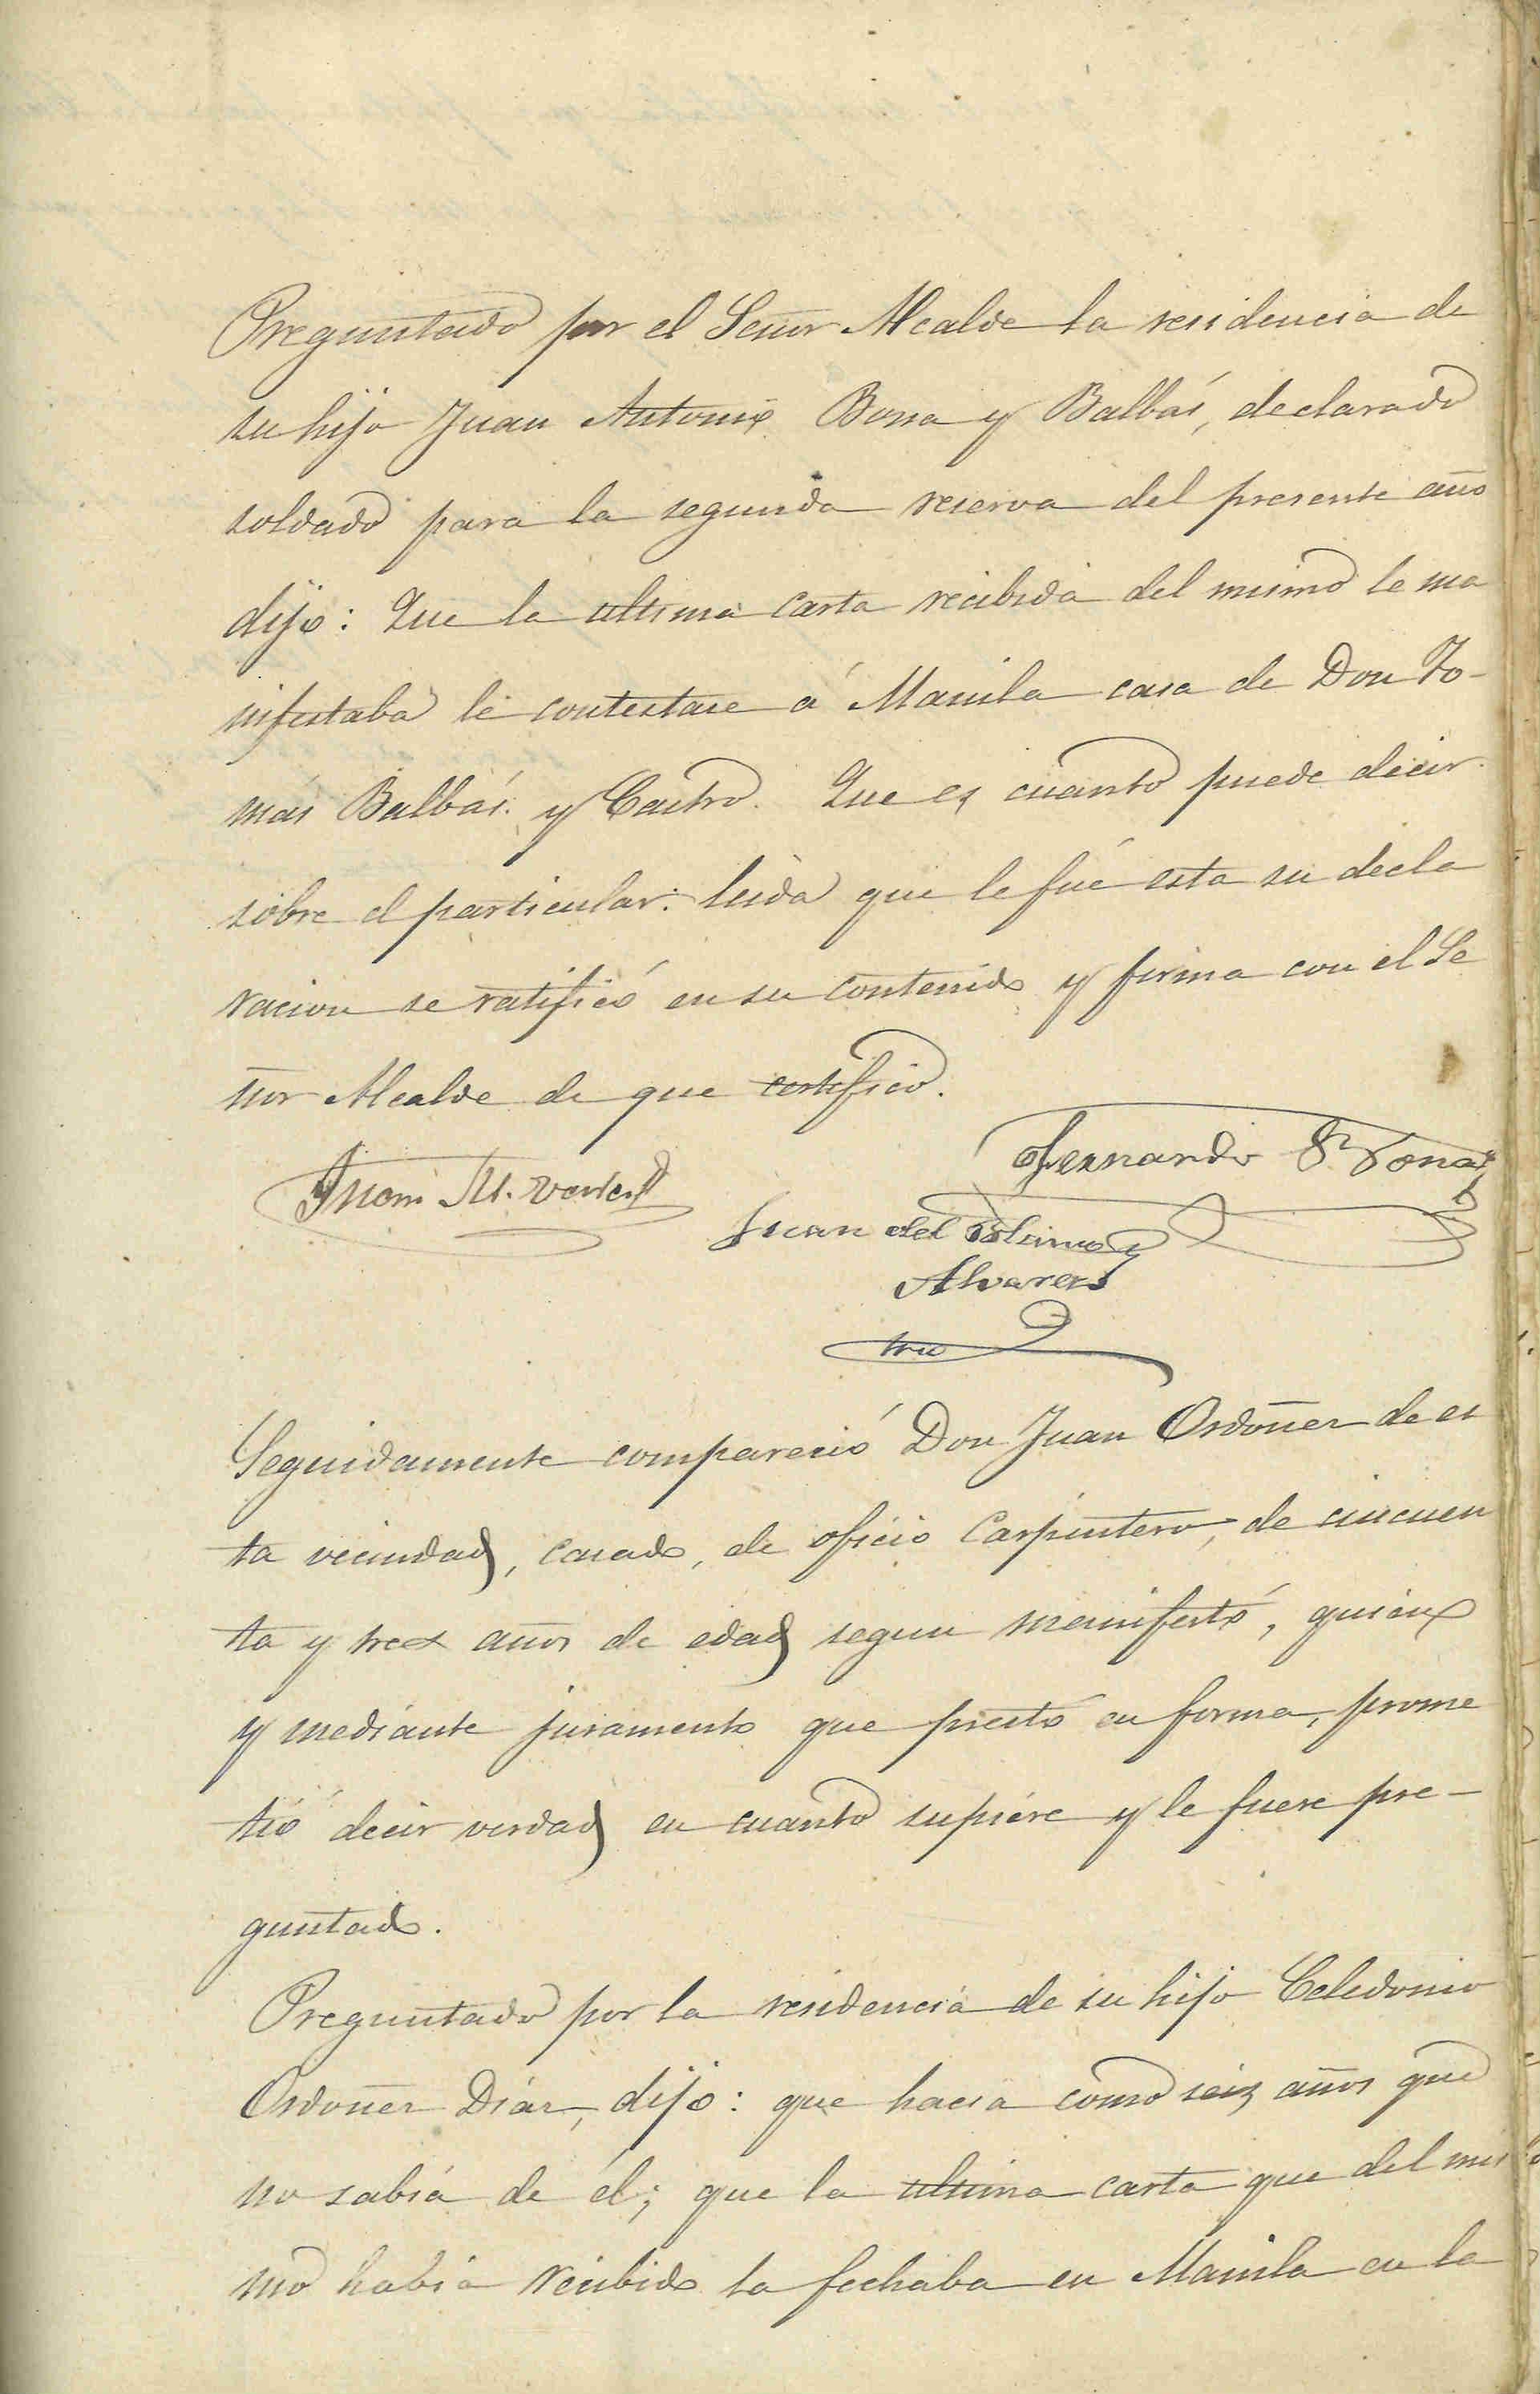 Preguntado por el Señor Alcalde la residencia de
su hijo Juan Antonio Bona y Balbás, declarado
soldado para la segunda reserva del presente año
dijo: Que la ultima carta recibida del mismo le ma
nifestaba le contestase á Manila casa de Don To-
más Balbás y Castro. Que es cuanto puede decir
sobre el particular: leida que le fué esta su decla
racion se ratificó en su contenido y firma con el Se
ñor Alcalde de que certifico.
Fernando Bona
Juan M.
Juan del
Alvarez
Srio
Seguidamente compareció Don Juan Ordoñez de es
ta vecindad, casado, de oficio Carpintero, de cincuen
ta y tres años de edad segun manifestó, quien
y mediante juramento que prestó en forma, prome
tió decir verdad en cuanto supiere y le fuere pre-
guntado.
Preguntado por la residencia de su hijo Celedonio
Ordoñez Diaz, dijo: que hacia como seis años que
no sabía de él; que la ultima carta que del mis
mo había recibido la fechaba en Manila en la